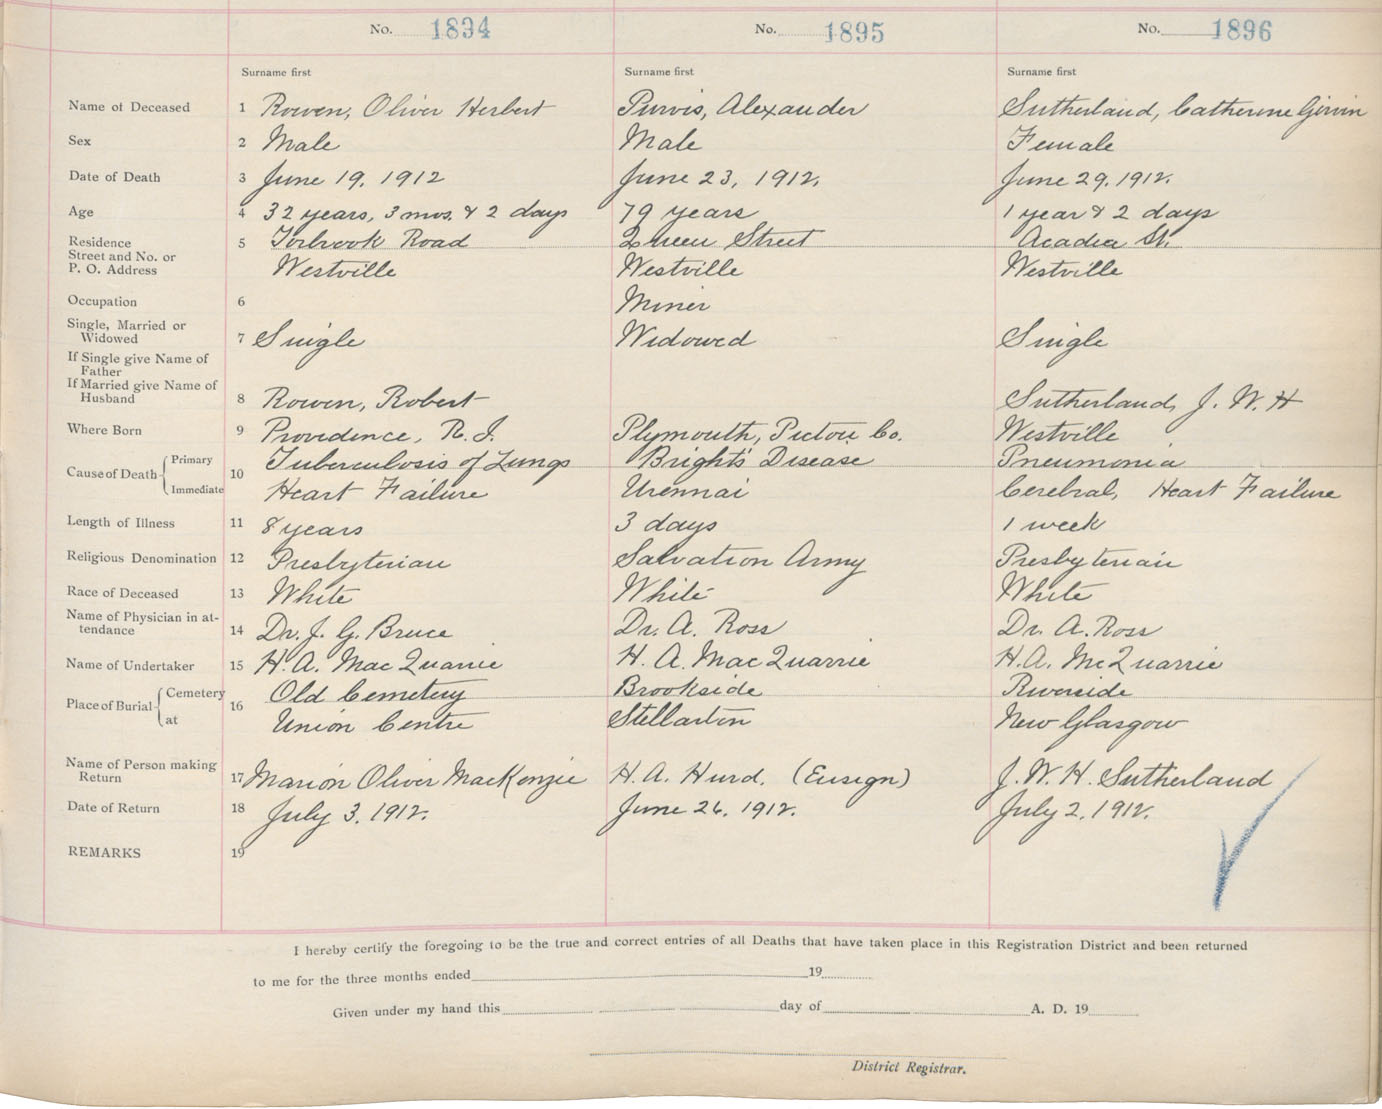 No. 1894 No. 1895 No. 1896
Surname first Surname first Surname first
Name of Deceased 1 Rowen, Oliver Herbert Purvis, Alexander Sutherland, Catherine Girvin
Sex 2 Male Male Female
Date of Death 3 June 19. 1912 June 23, 1912. June 29, 1912.
Age 4 32 years, 3 mos. & 2 days 79 years 1 year & 2 days
Residence 5 Torbrook Road Queen Street Acadia St.
Street and No. or
P. O. Address Westville Westville Westville
Occupation 6 Miner
Single, Married or
Widowed 7 Single Widowed Single
If Single give Name of
Father
If Married give Name of
Husband 8 Rowen, Robert Sutherland, J. W. H
Where Born 9 Providence, R. I. Plymouth, Pictou Co. Westville
Cause of Death Primary 10 Tuberculosis of Lungs Bright's Disease Pneumonia
Immediate Heart Failure Uremai Cerebral, Heart Failure
Length of Illness 11 8 years 3 days 1 week
Religious Denomination 12 Presbyterian Salvation Army Presbyterian
Race of Deceased 13 White White White
Name of Physician in at-
tendance 14 Dr. J. G. Bruce Dr. A. Ross Dr. A. Ross
Name of Undertaker 15 H. A. MacQuarrie H. A. MacQuarrie H. A. McQuarrie
Place of Burial Cemetery 16 Old Cemetery Brookside Riverside
at Union Centre Stellarton New Glasgow
Name of Person making
Return 17 Marion Oliver MacKenzie H. A. Hurd. (Ensign) J. W. H. Sutherland
Date of Return 18 July 3. 1912. June 26, 1912. July 2, 1912.
REMARKS 19
I hereby certify the foregoing to be the true and correct entries of all Deaths that have taken place in this Registration District and been returned
to me for the three months ended 19
Given under my hand this day of A. D. 19
District Registrar.